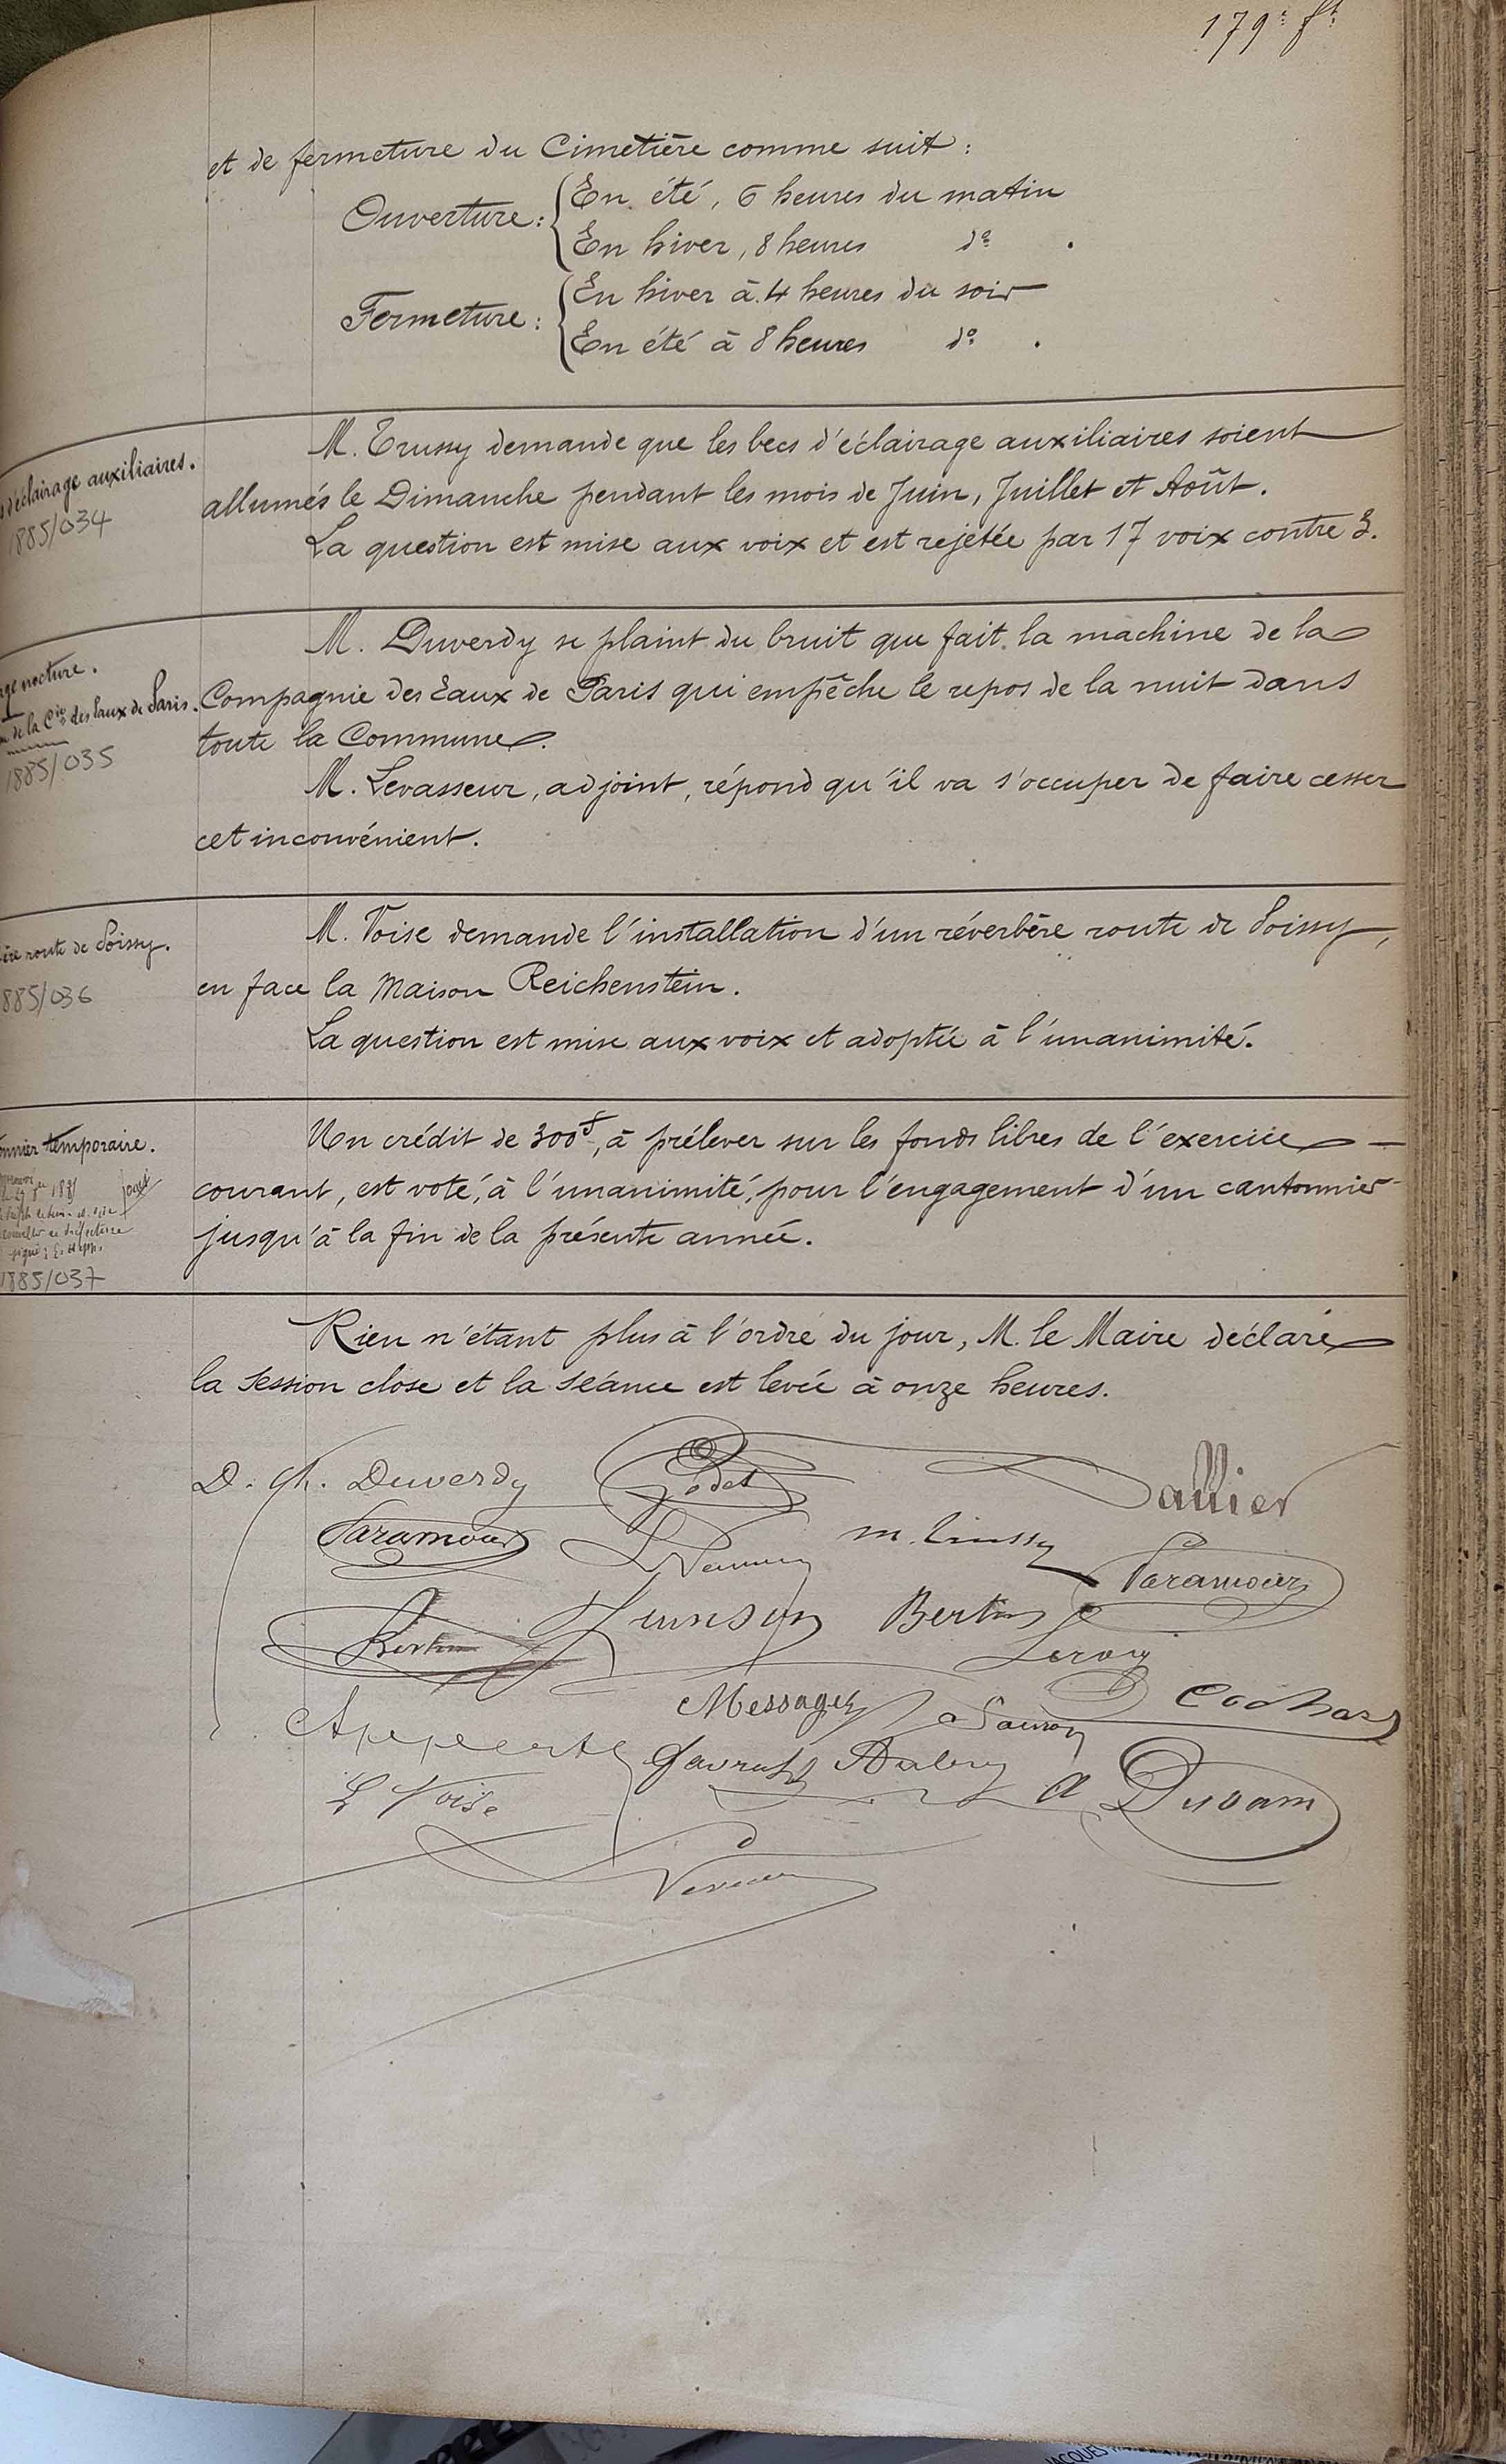 179e ft
et de fermeture du Cimetière comme suit :
Ouverture : { En été, 6 heures du matin
En hiver, 8 heures do .
Fermeture : { En hiver à 4 heures du soir
En été à 8 heures do .
d'éclairage auxiliaires.
1885/034
M. Trussy demande que les becs d'éclairage auxiliaires soient
allumés le Dimanche pendant les mois de Juin, Juillet et Août.
La question est mise aux voix et est rejetée par 17 voix contre 3.
nocture.
de la Cie des Eaux de Paris.
1885/035
M. Duverdy se plaint du bruit que fait la machine de la
Compagnie des Eaux de Paris qui empêche le repos de la nuit dans
toute la Commune.
M. Levasseur, adjoint, répond qu'il va s'occuper de faire cesser
cet inconvénient.
ère route de Poissy.
885/036
M. Voise demande l'installation d'un réverbère route de Poissy,
en face la Maison Reichenstein.
La question est mise aux voix et adoptée à l'unanimité.
onnier temporaire.
1885/037
Un crédit de 300f, à prélever sur les fonds libres de l'exercice
courant, est voté, à l'unanimité, pour l'engagement d'un cantonnier
jusqu'à la fin de la présente année.
Rien n'étant plus à l'ordre du jour, M. le Maire déclare
la session close et la séance est levée à onze heures.
D. Ch. Duverdy Godet Dallier
Paramour m. Trussy Paramour
Bertin Bertin
Leroy
Messager Cochard
Appert Aubry
L Voise A Duvam
JACQUES